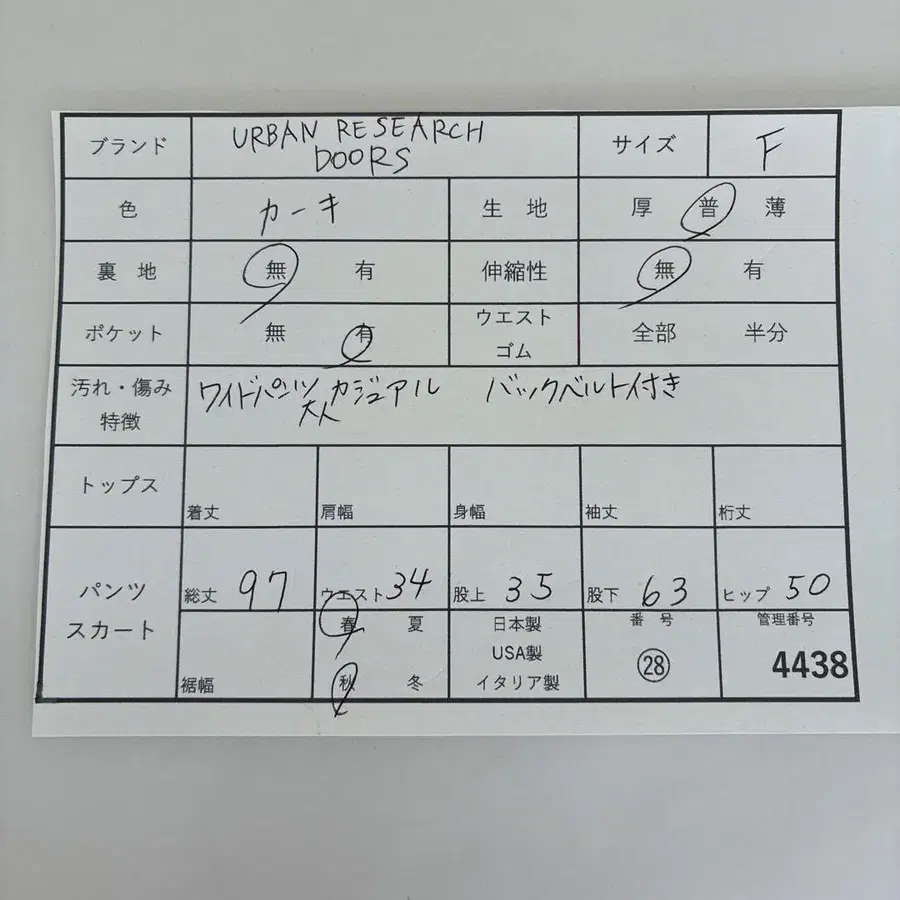 ブランド URBAN RESEARCH DOORS サイズ F
色 カーキ 生地 厚 普 薄
裏地 無 有 伸縮性 無 有
ポケット 無 有 ウエストゴム 全部 半分
汚れ・傷み特徴 ワイドパンツ 大人カジュアル バックベルト付き
トップス 着丈 肩幅 身幅 袖丈 裄丈
パンツスカート 総丈 97 ウエスト 34 股上 35 股下 63 ヒップ 50
裾幅 春 夏 秋 冬 日本製 USA製 イタリア製 番号 ㉘ 管理番号 4438